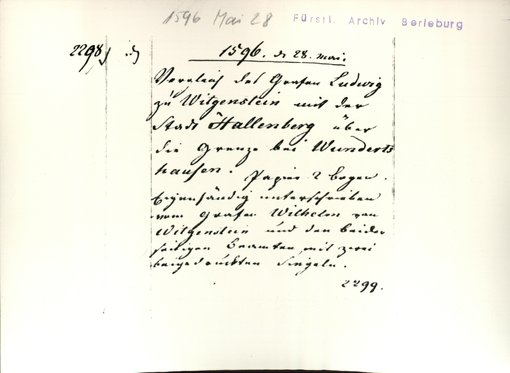 1596 Mai 28 Fürstl. Archiv Berleburg
2298)
1596. d 28. Mai.
Vergleich des Grafen Ludwig
zu Witgenstein mit der
Stadt Hallenberg über
die Grenze bei Wunderts
hausen. Papier 2 Bogen.
Eigenhändig unterschrieben
vom Grafen Wilhelm von
Witgenstein und den beider
seitigen Beamten, mit zwei
beigedruckten Siegeln.
2299.